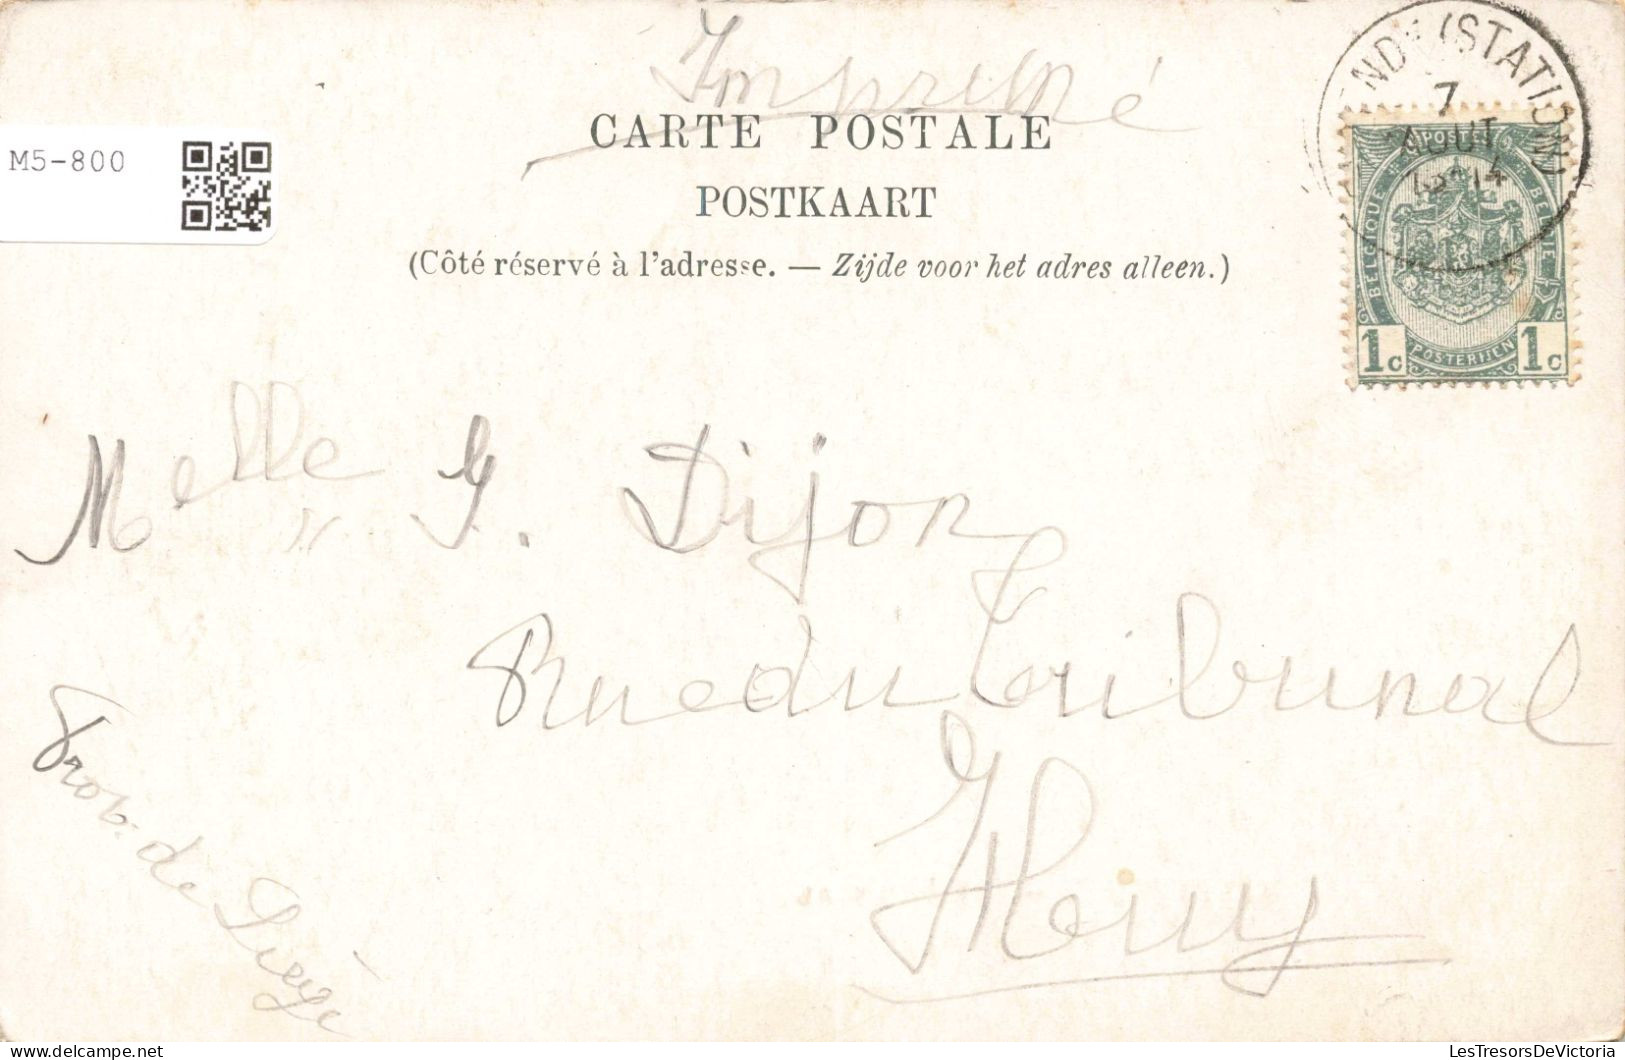 Imprimé
CARTE POSTALE
POSTKAART
(Côté réservé à l'adresse. — Zijde voor het adres alleen.)
M5-800
(STATION)
7
AOUT
POSTES
BELGIQUE
BELGIE
1c POSTERIJEN 1c
Melle G. Dijon
Rue du Tribunal
Huy
Prov. de Liége
LesTresorsDeVictoria